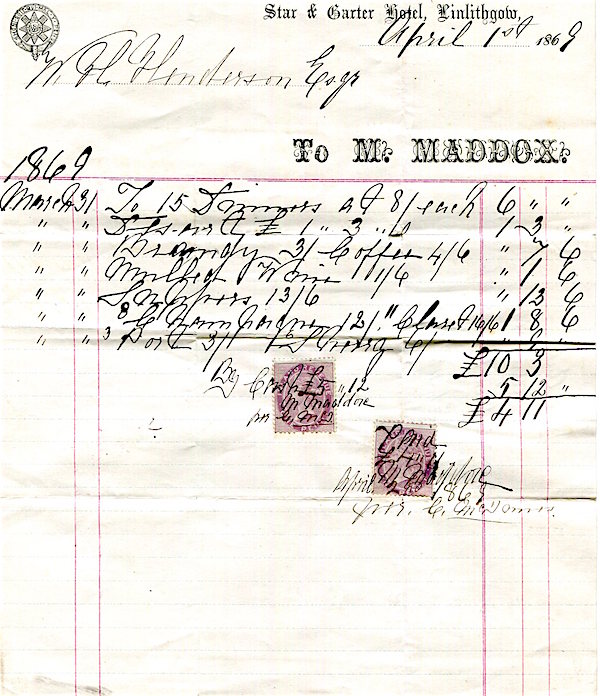 Star & Garter Hotel, Linlithgow,
April 1st 1869
W. H. Henderson Esqr
To M. MADDOX.
1869
March 31 To 15 Dinners at 8/ each 6 " "
" " £ 1 " 3 " 1 3 "
" " Brandy 3/ Coffee 4/6 " 7 6
" " Mulled Wine 1/6 " 1 6
" " Suppers 13/6 " 13 6
" " Champagne 12/ " Claret 16/6 1 8 6
" " 3 Port 3/ Sherry 6/
£10 3
By Cash £5 " 12 5 12 "
M Maddox £4 11
per
£4 "
M Maddox
April 1869
per C.